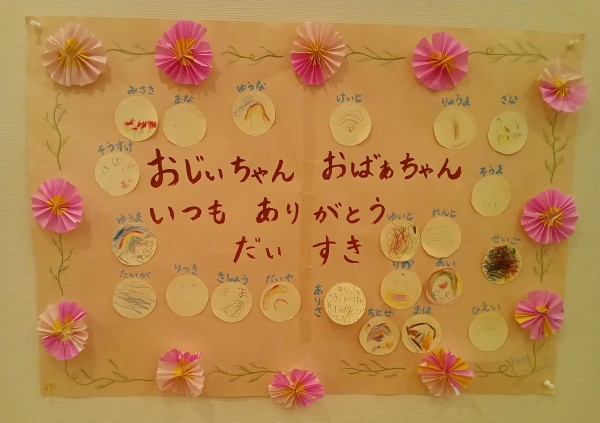 みさき
まな
ゆうな
けいと
りょうま
さな
そうすけ
おじぃちゃん おばぁちゃん
そうま
いつも ありがとう
ゆうま
ゆいと
れんと
せいご
だぃ すき
たいが
りつき
さしょう
だいや
ありさ
りお
めい
ちとせ
まほ
ひえい